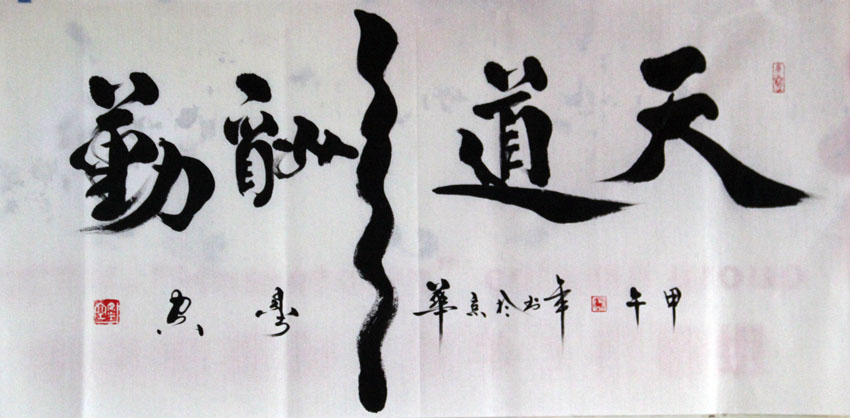 天道酬勤
甲午年於京華